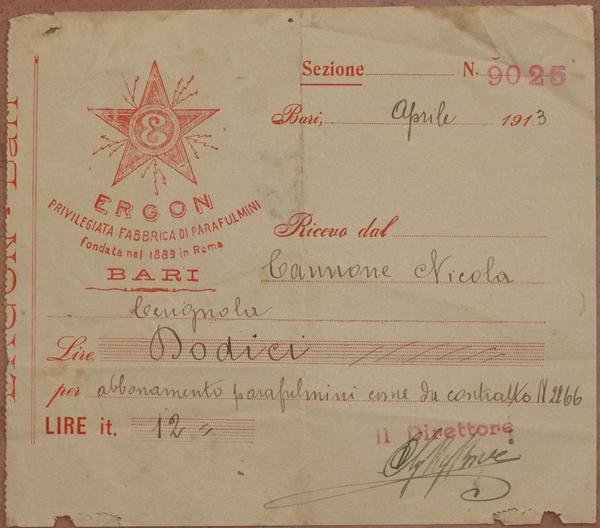 Sezione N. 9025
Bari, Aprile 1913
E
ERGON
PRIVILEGIATA FABBRICA DI PARAFULMINI
fondata nel 1889 in Roma
BARI
Ricevo dal
Cannone Nicola
Cerignola
Lire Dodici
per abbonamento parafulmini come da contratto N 2266
LIRE it. 12
Il Direttore
ERGON - BARI